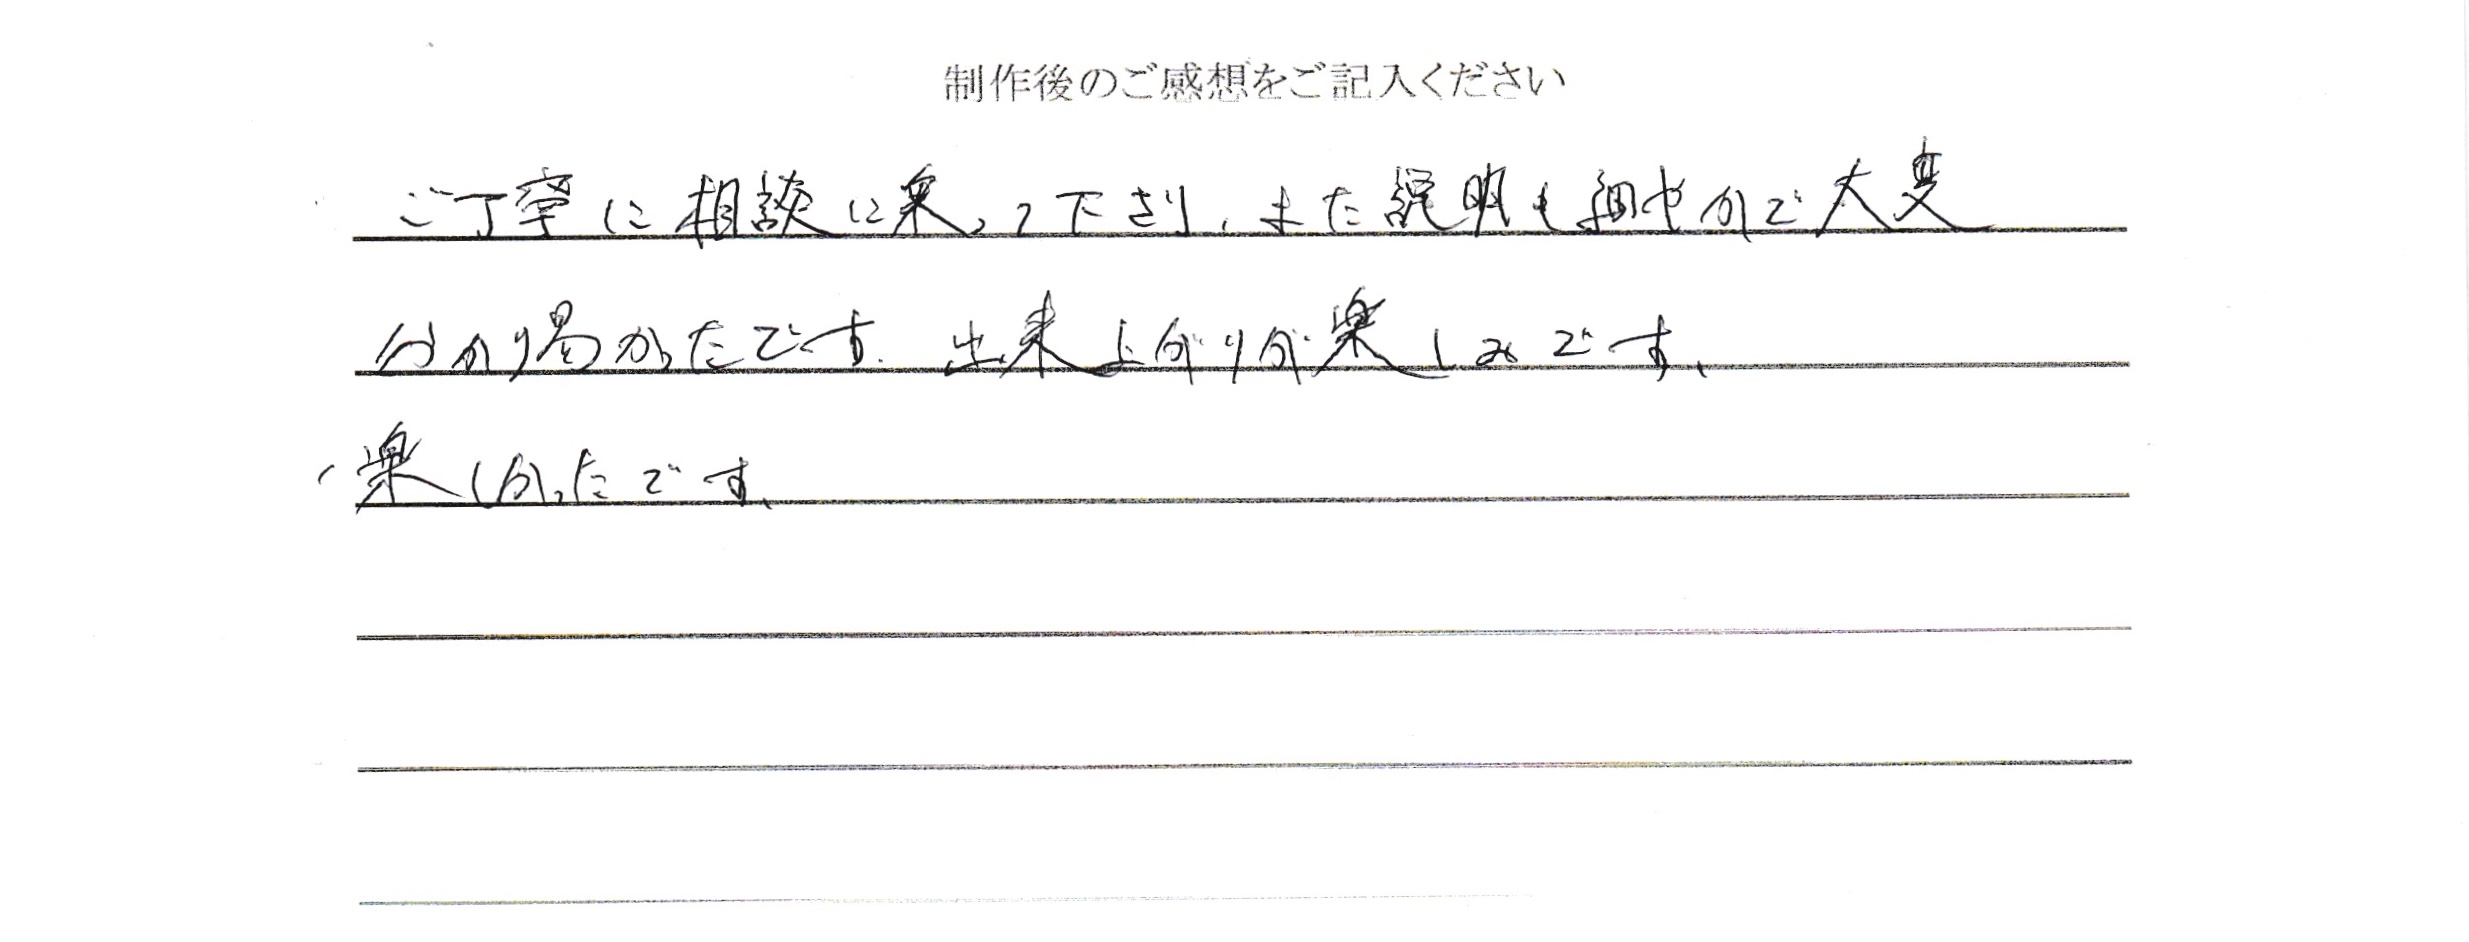 制作後のご感想をご記入ください
ご丁寧に相談に乗って下さり、また説明も細やかで大変
分かり易かったです。出来上がりが楽しみです。
楽しかったです。